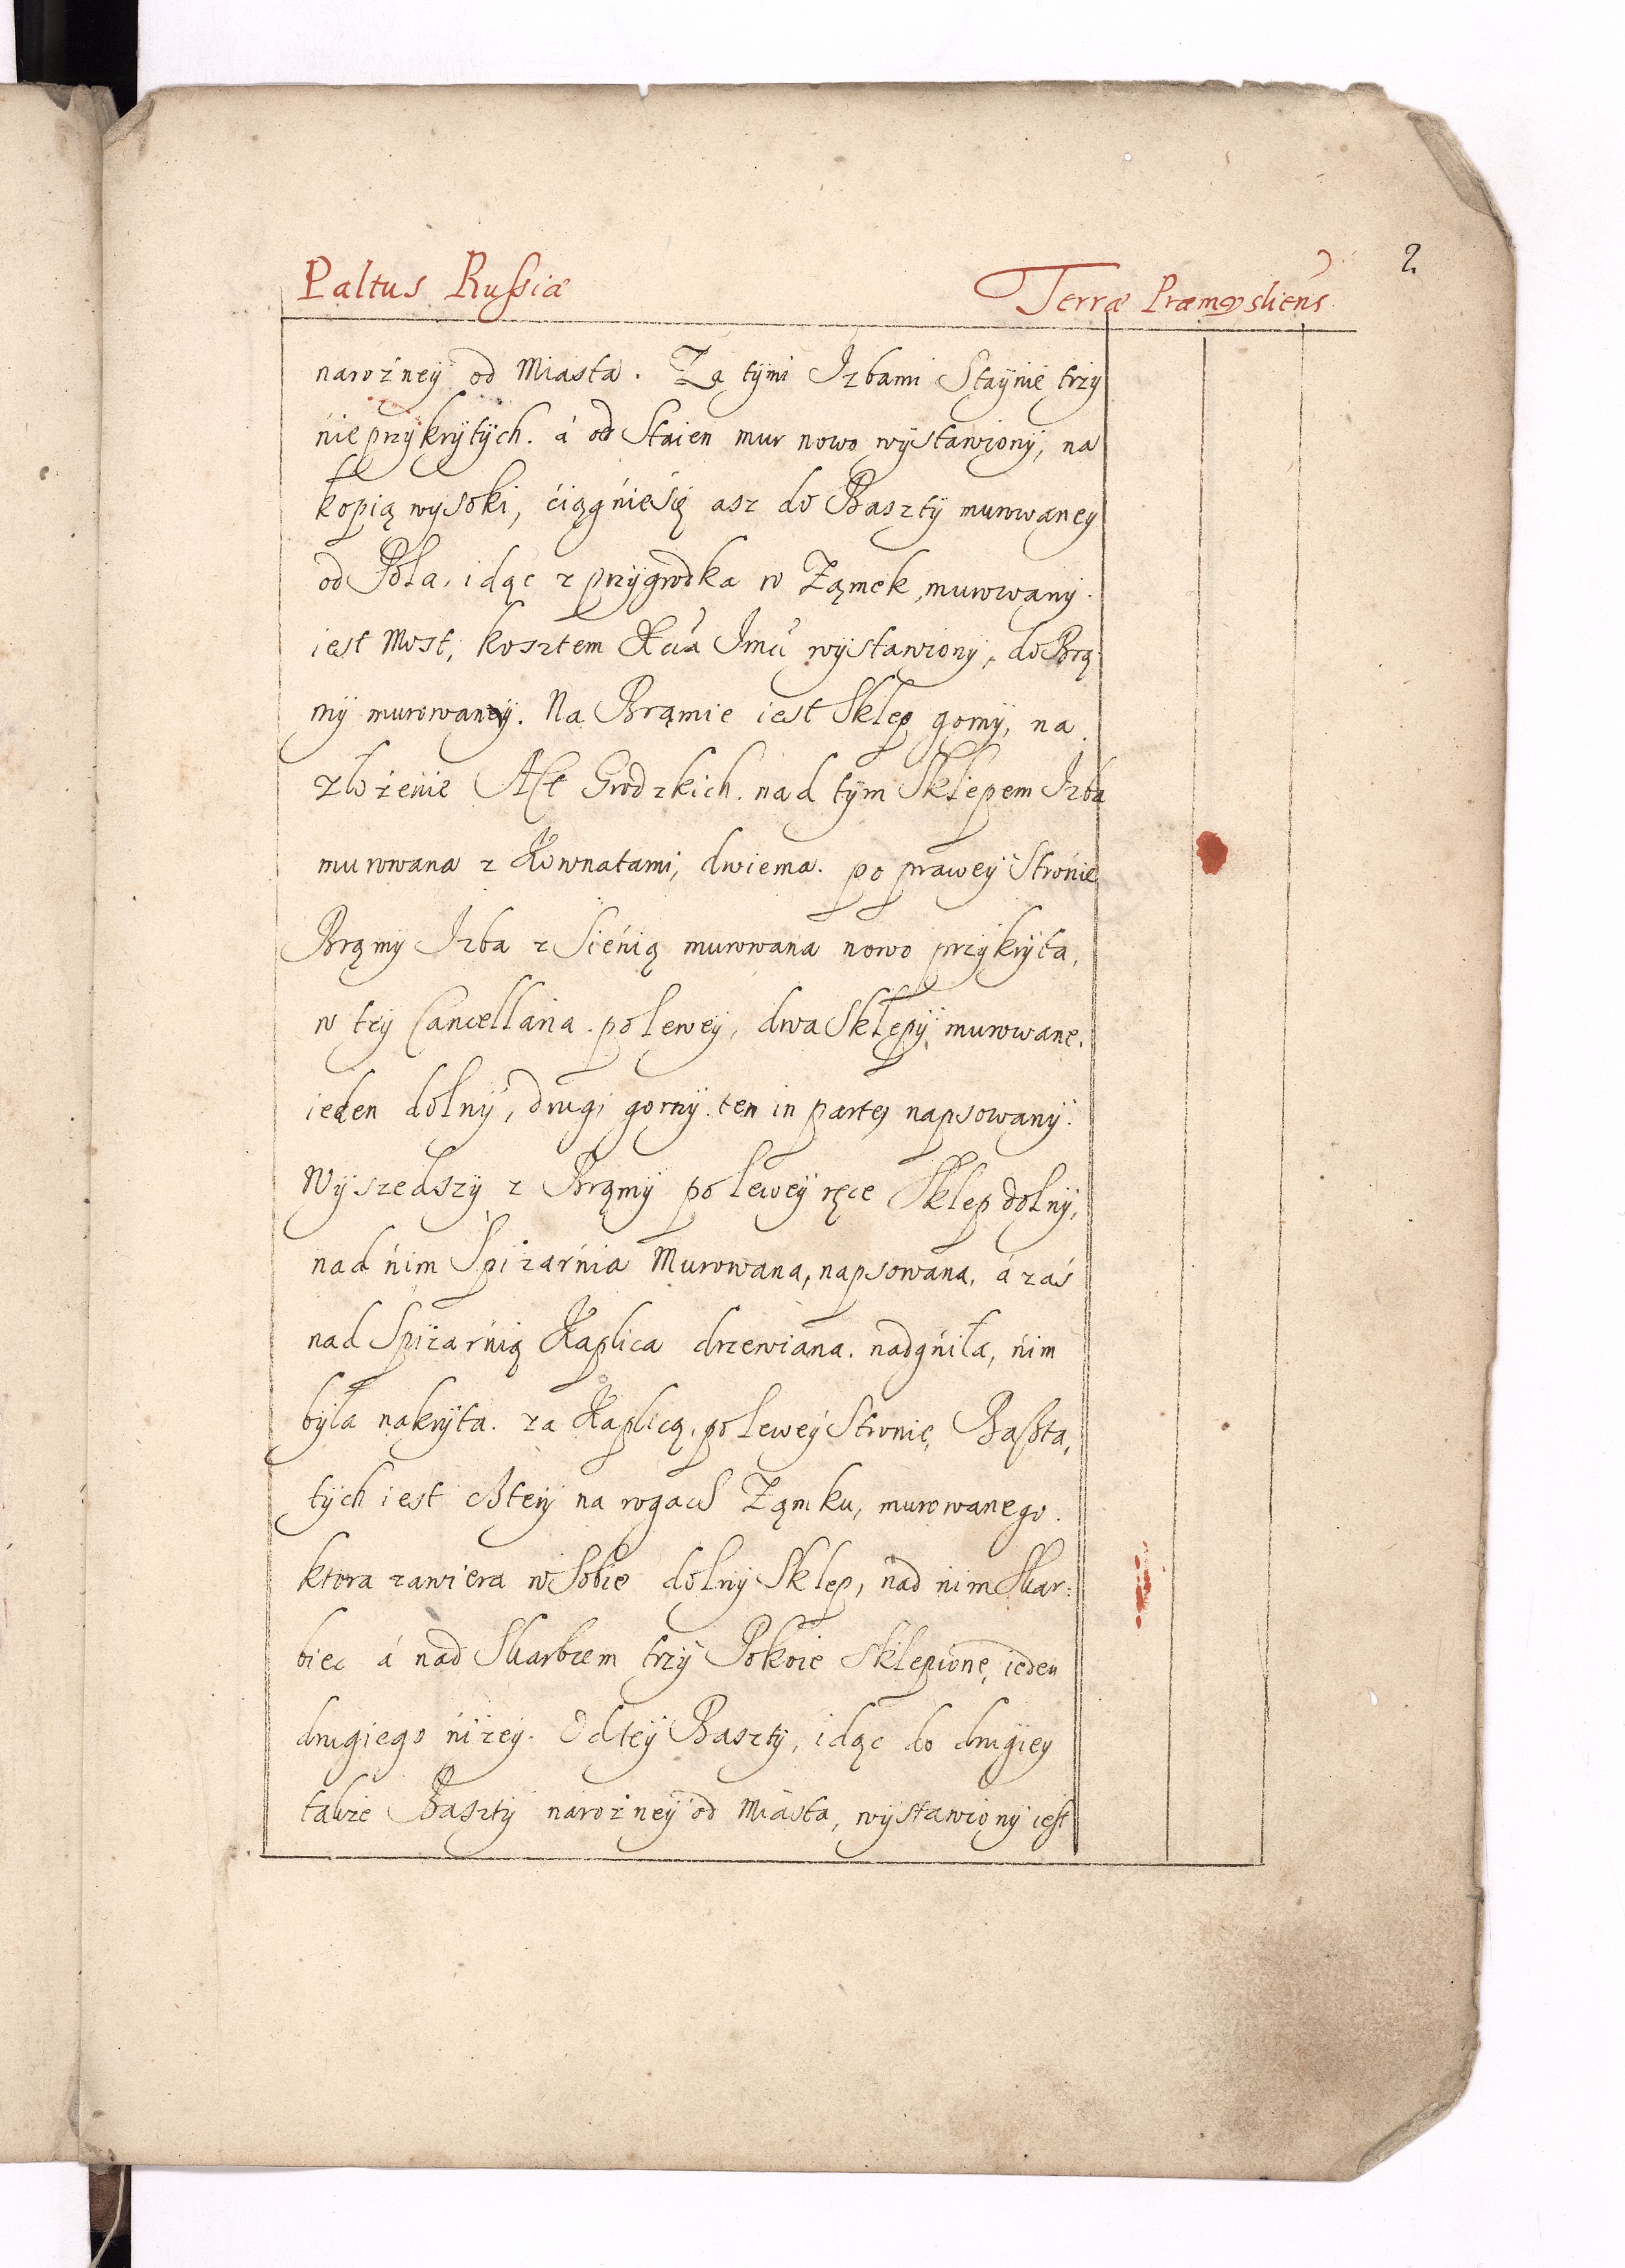 2.
Paltus Rußiæ Terræ Præmysliens
narożney od Miasta. Zą tymi Izbami Staynie trzy
nie przykrytych. á od Staien mur nowo wystawiony, na
kopią wysoki, ciągnie się asz do Baszty murowaney
od Pola, idąc z przygrodka w Zamek, murowany
iest Most, kosztem Imci wystawiony, do Brą
my murowaney. Na Brąmie iest Sklep gorny, na
złożenie Act Grodzkich. nad tym Sklepem Izba
murowana z Komnatami, dwiema. po prawey Stronie
Brąmy Izba z Sienią murowana nowo przykryta,
w tey Cancellaria. po lewey, dwa Sklepy murowane.
ieden dolny, drugi gorny. ten in parte napsowany.
Wyszedszy z Brąmy po lewey ręce Sklep dolny,
nad nim Spiżarnia Murowana, napsowana, á zaś
nad Spiżarnią Kaplica drzewiana. nadgniła, nim
była nakryta. za Kaplicą, po lewey Stronie, Baßta,
tych iest cztery na rogach Ząmku, murowanego.
ktora zawiera w Sobie dolny Sklep, nad nim Skar:
biec á nad Skarbcem trzy Pokoie Sklepione, ieden
drugiego niżey. Od tey Baszty, idąc do drugiey
takie Baszty narożney od Miasta, wystawiony iest